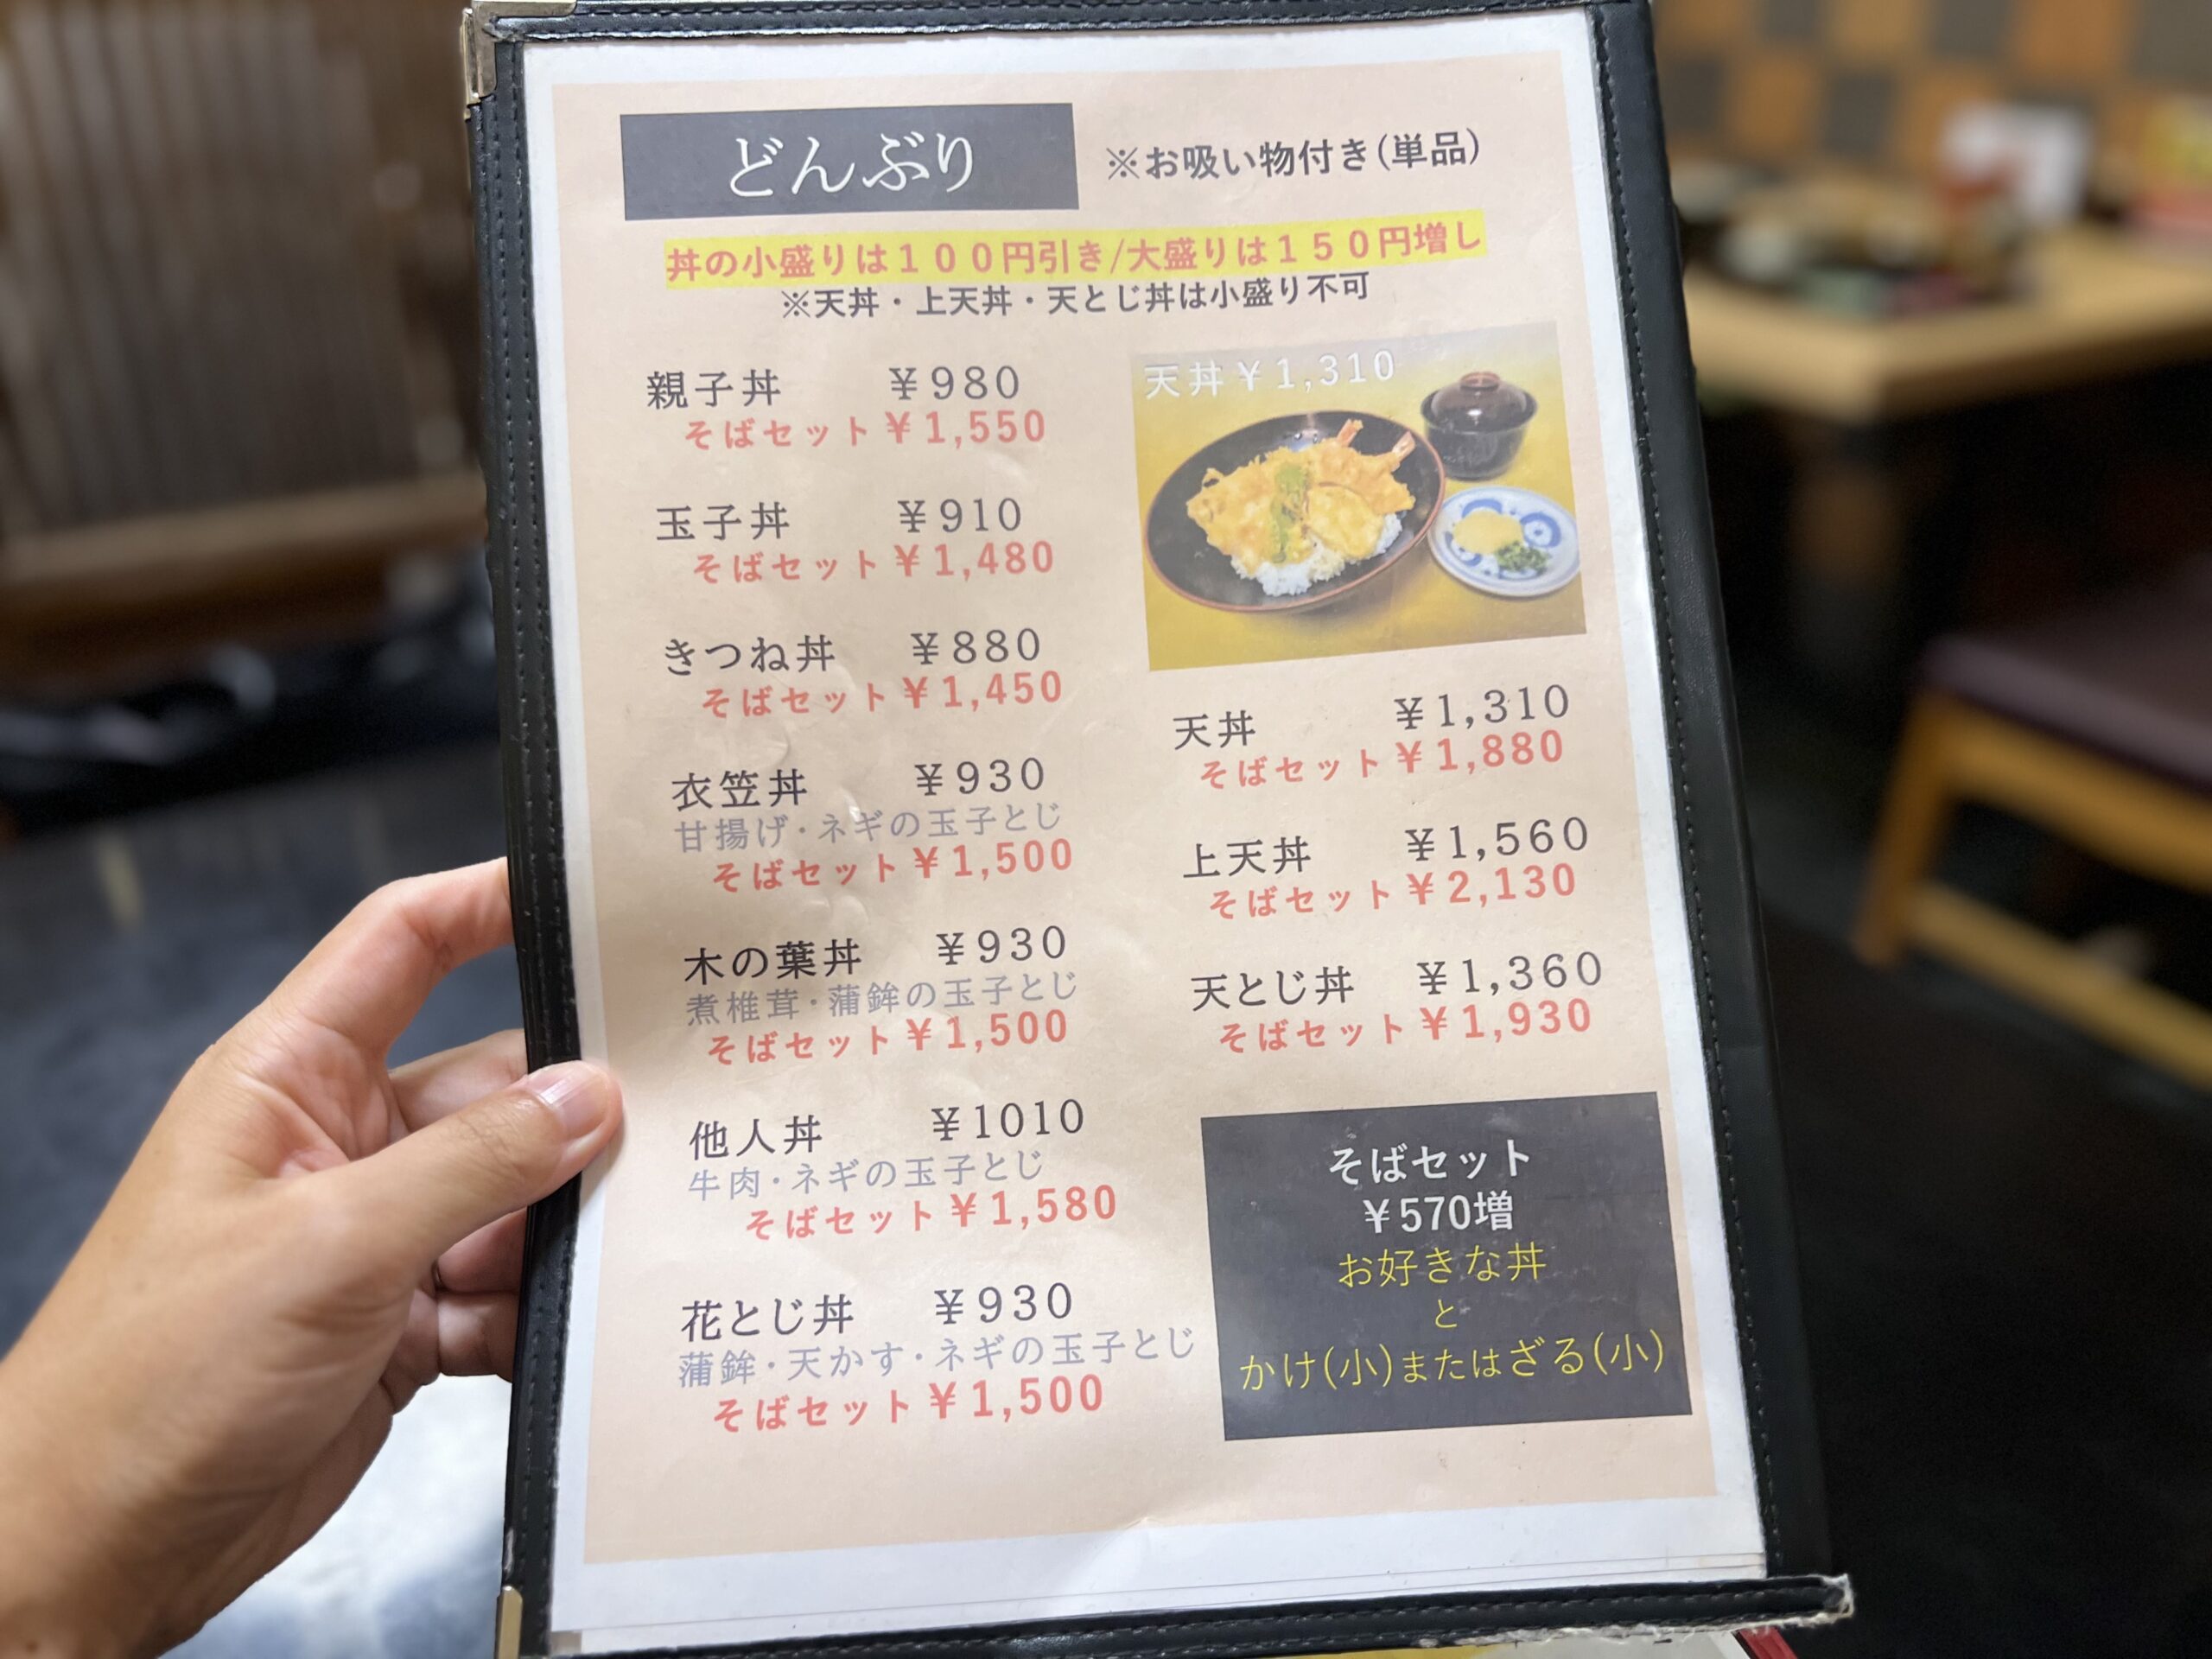 どんぶり
※お吸い物付き(単品)
丼の小盛りは１００円引き/大盛りは１５０円増し
※天丼・上天丼・天とじ丼は小盛り不可
親子丼 ￥980
そばセット￥1,550
玉子丼 ￥910
そばセット￥1,480
きつね丼 ￥880
そばセット￥1,450
衣笠丼 ￥930
甘揚げ・ネギの玉子とじ
そばセット￥1,500
木の葉丼 ￥930
煮椎茸・蒲鉾の玉子とじ
そばセット￥1,500
他人丼 ￥1010
牛肉・ネギの玉子とじ
そばセット￥1,580
花とじ丼 ￥930
蒲鉾・天かす・ネギの玉子とじ
そばセット￥1,500
天丼￥1,310
天丼 ￥1,310
そばセット￥1,880
上天丼 ￥1,560
そばセット￥2,130
天とじ丼 ￥1,360
そばセット￥1,930
そばセット
￥570増
お好きな丼
と
かけ(小)またはざる(小)